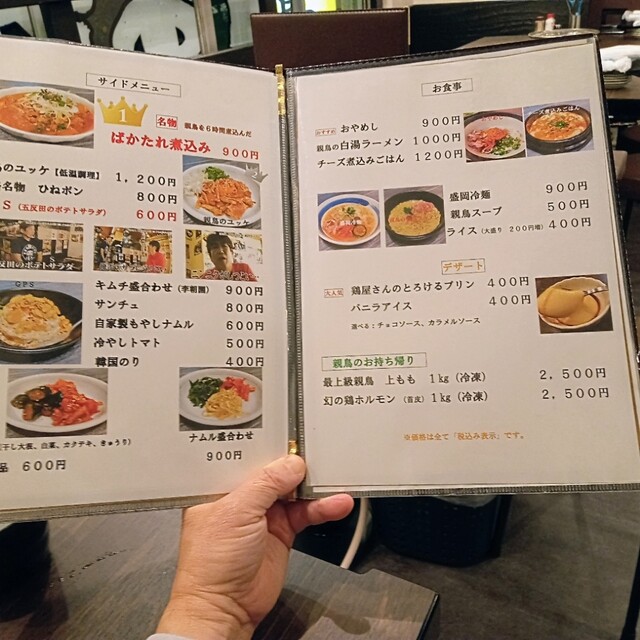 サイドメニュー
1
名物 親鳥を6時間煮込んだ
ばかたれ煮込み 900円
のユッケ【低温調理】 1,200円
名物 ひねポン 800円
S (五反田のポテトサラダ) 600円
親鳥のユッケ
反田のポテトサラダ
GPS
キムチ盛合わせ (李朝園) 900円
サンチュ 800円
自家製もやしナムル 600円
冷やしトマト 500円
韓国のり 400円
干し大根、白菜、カクテキ、きゅうり)
品 600円
ナムル盛合わせ
900円
お食事
おすすめ おやめし 900円
親鳥の白湯ラーメン 1000円
チーズ煮込みごはん 1200円
チーズ煮込みごはん
盛岡冷麺 900円
親鳥スープ 500円
ライス (大盛り 200円増) 400円
デザート
大人気 鶏屋さんのとろけるプリン 400円
バニラアイス 400円
選べる:チョコソース、カラメルソース
親鳥のお持ち帰り
最上級親鳥 上もも 1kg (冷凍) 2,500円
幻の鶏ホルモン (首皮) 1kg (冷凍) 2,500円
※価格は全て「税込み表示」です。